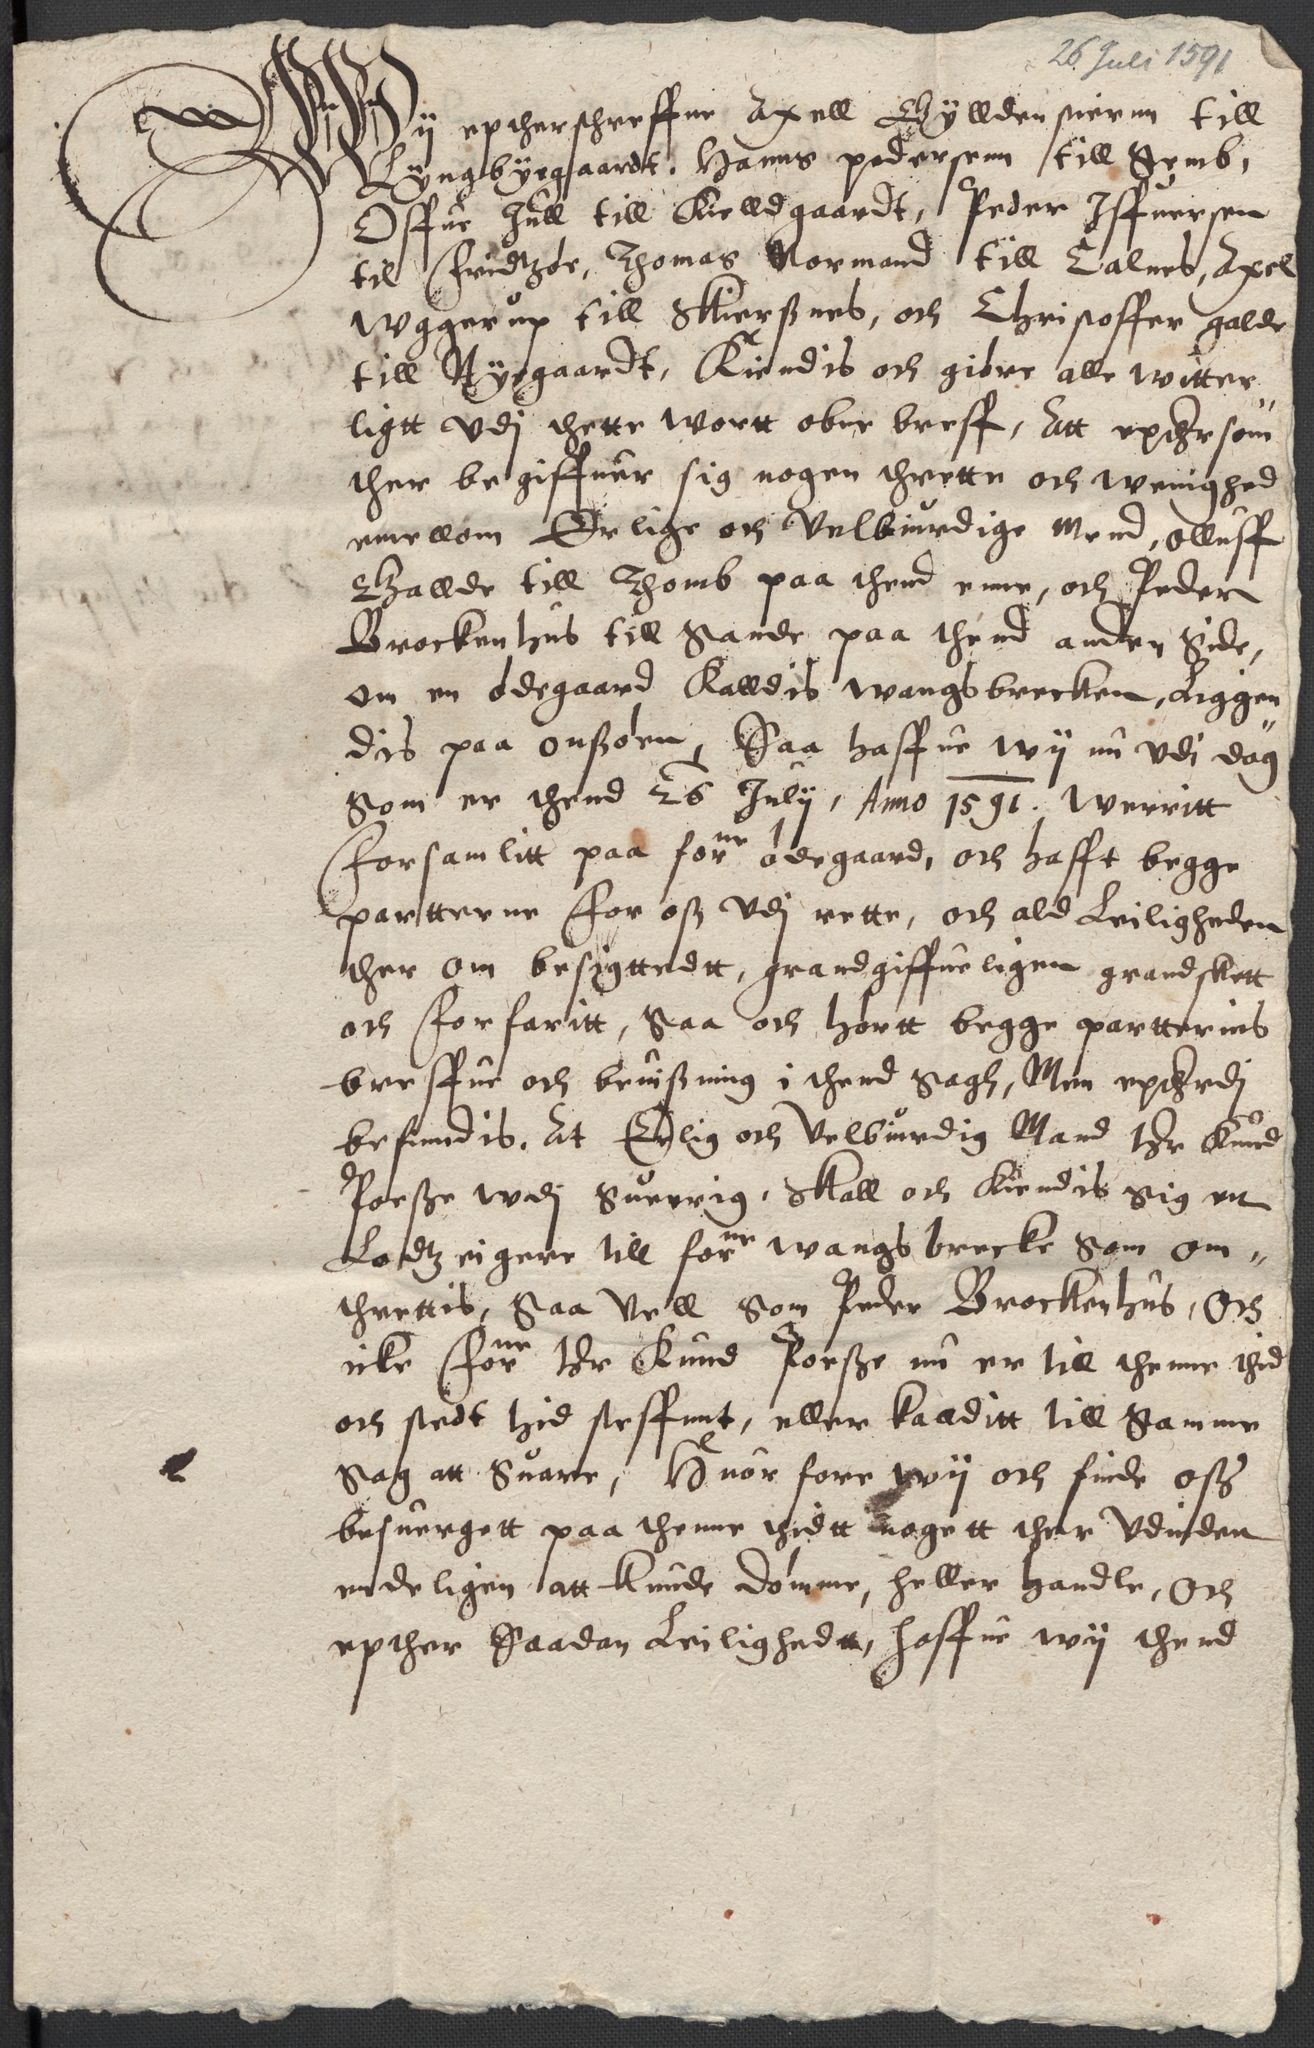 26 Juli 1591
Wij eptherschreffne Axell Gÿlldenstiernn till
Lÿngbÿegaardt. Hanns pedersenn till Semb,
Offue Jull till Kielldgaardt, Peder Iffuersen
til Fredtzøe, Thomas Normand till Calnes, Axel
Wggerup till Skiersnes, och Christoffer galde
till Nÿegaardt, Kiendis och giøre alle witter
ligtt vdj thette wortt obne breff, Att epthersom
ther begiffuer sig nogen thrette och wenighed
emellom Erlige och Velbiurdige Mend, olluff
Gallde till Thomb paa thend enne, och Peder
Brockenhus till Sande paa thend anden Side,
om en ødegaard Kalldis wangsbrecken, Liggen
dis paa onssøen, Saa haffue wij nu vdi dag
Som er thend 26 Julij, Anno 1591. Werritt
forsamlitt paa forne ødegaard, och hafft begge
partterne for oss vdj rette, och ald Leiligheden
ther om besigttedtt, grandgiffueligen grandskett
och forfaritt, Saa och hørtt begge partternis
breffue och beuissning i thend Sagh, Men epttherdj
befindis. At Erlig och Velbiurdig Mand Her Knud
Posse wdj Suerrig, Skall och Kiendis Sig en
Lodtzeigere till forne wangsbrecke Som om
threttis, Saa Vell Som Peder Brockenhus, Och
icke forne Her Knud Posse nu er till thenne thid
och stedt hid steffnnt, eller kalditt till Samme
Sag att Suare, Huor fore wij och finde oss
besuergett paa thenne thidtt nogett ther Vdinden
endeligen att kunde dømme, heller handle, Och
epther Saadan Leilighedt, haffue wij thend